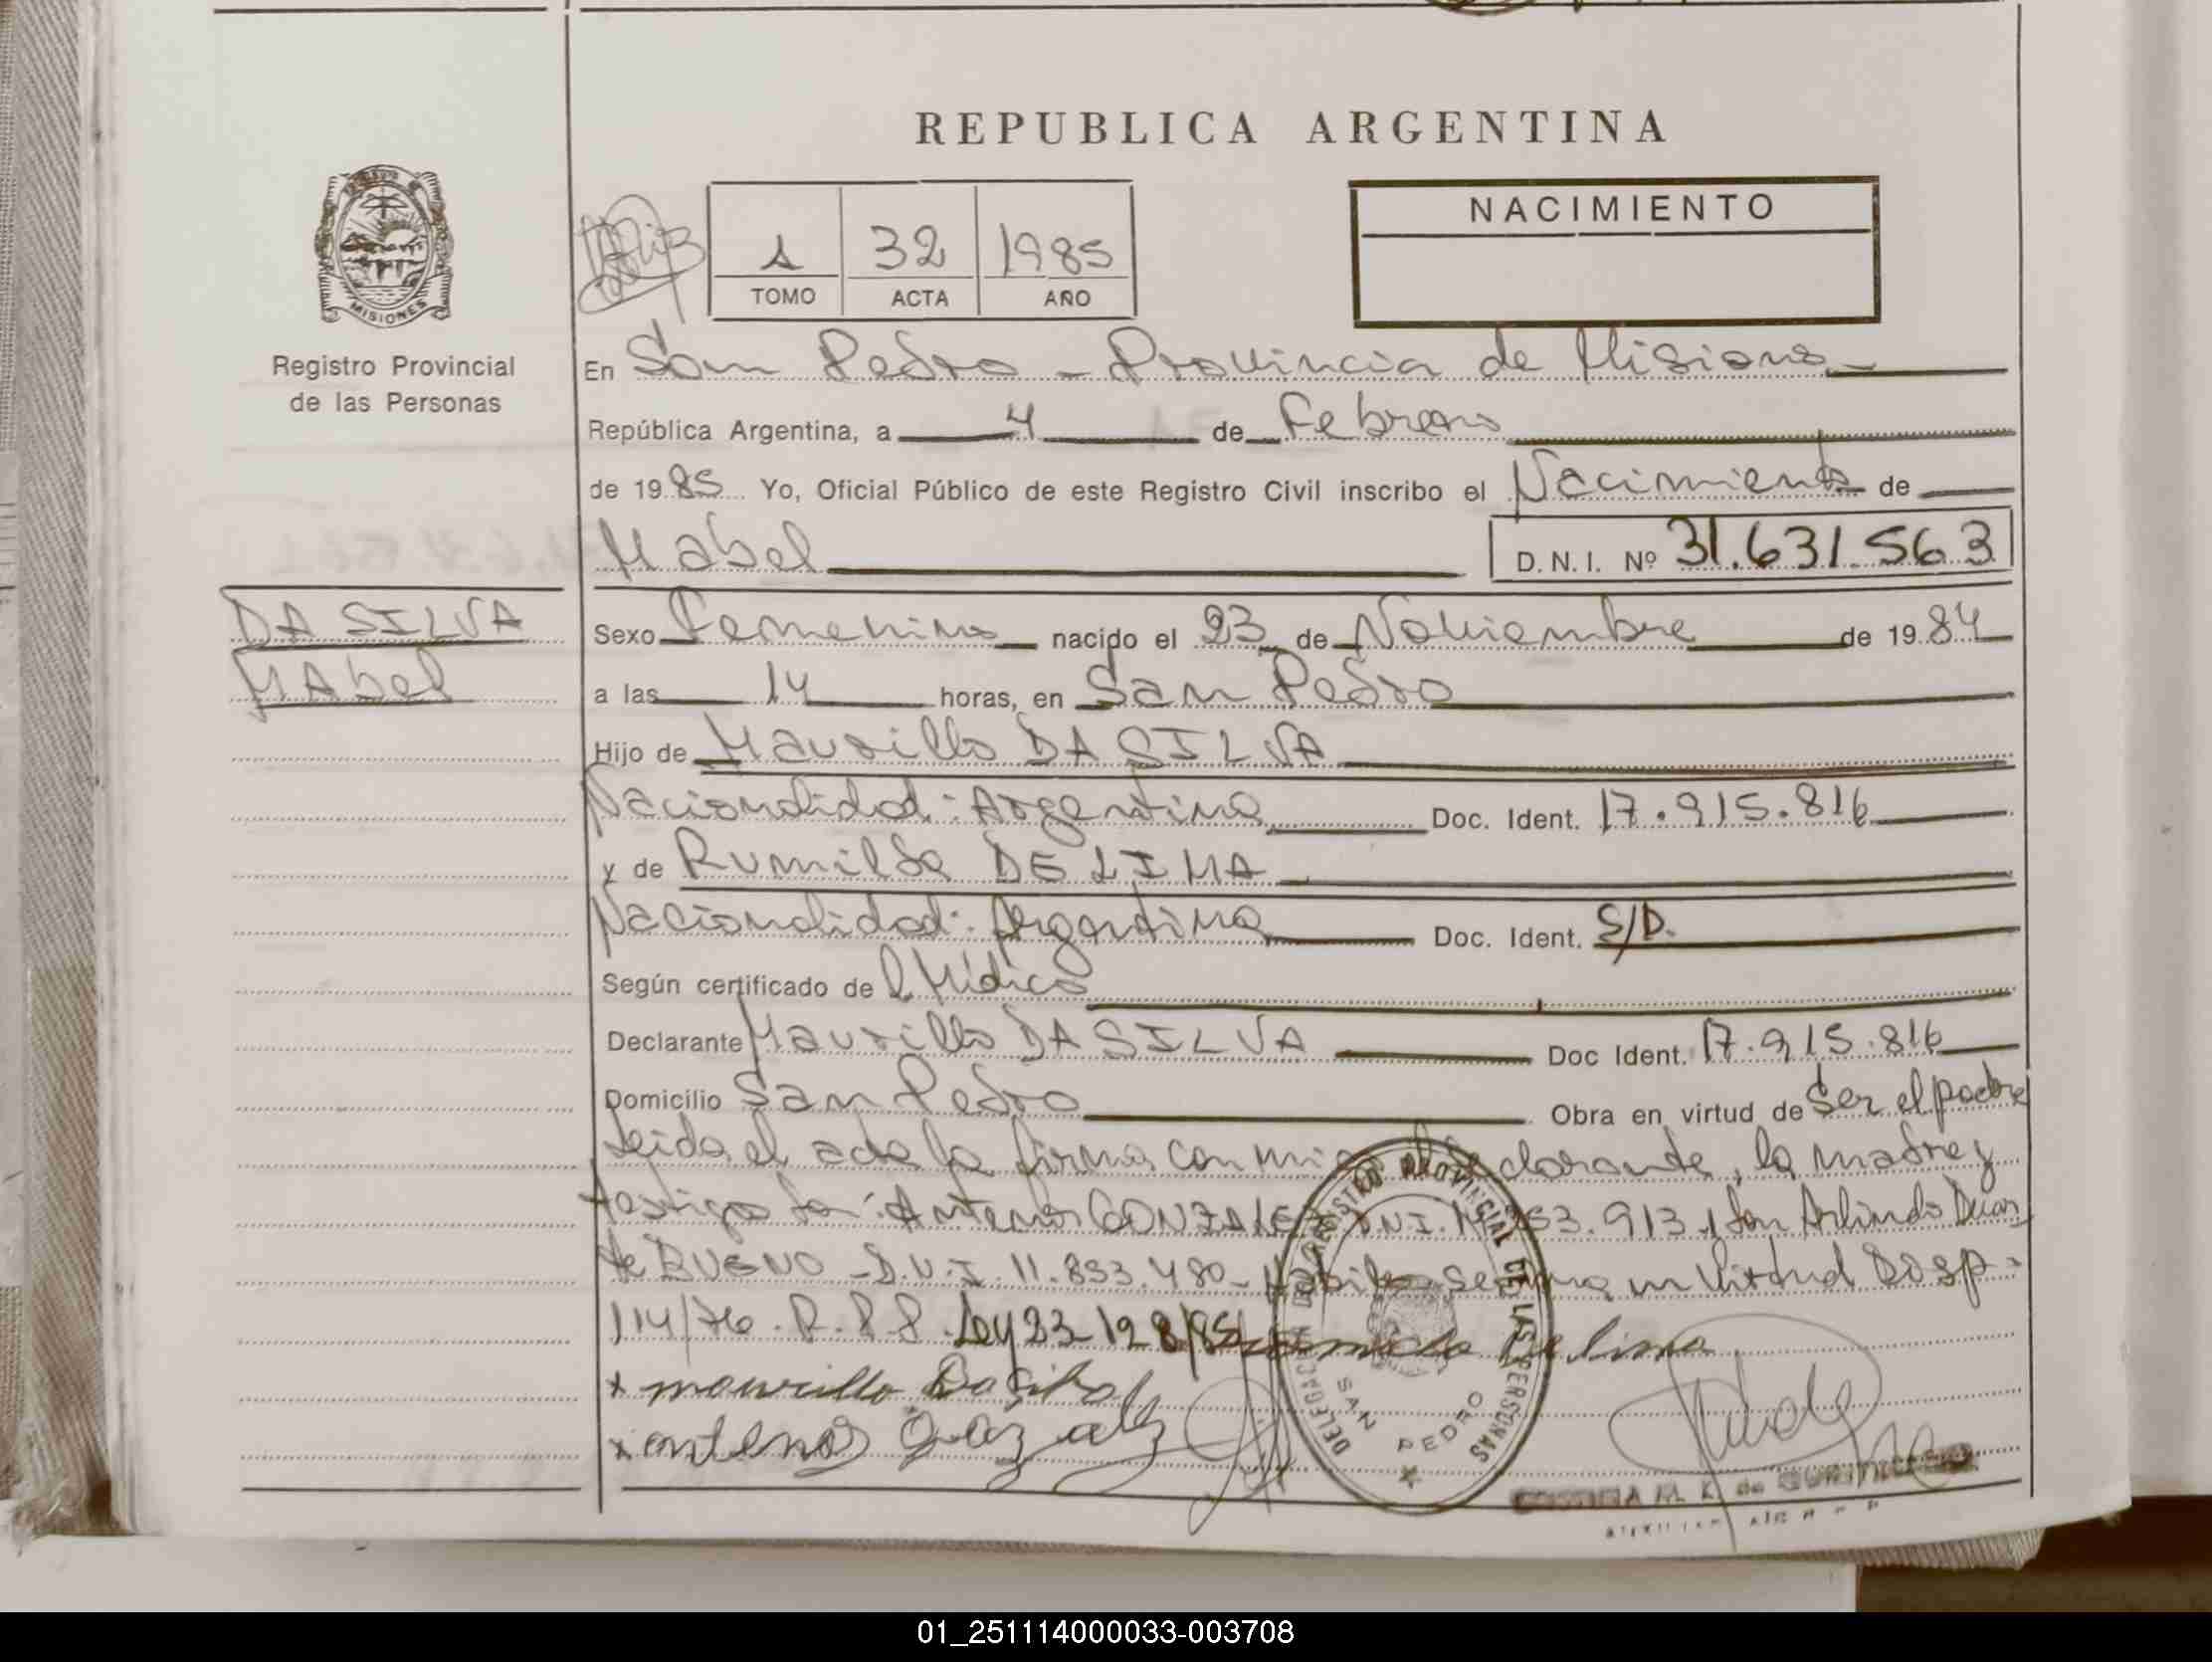 REPUBLICA ARGENTINA
MISIONES
Registro Provincial
de las Personas
1 32 1985
TOMO ACTA AÑO
NACIMIENTO
En San Pedro - Provincia de Misiones -
República Argentina, a 4 de Febrero
de 1985 Yo, Oficial Público de este Registro Civil inscribo el Nacimiento de
Mabel D.N.I. Nº 31.631.563
DA SILVA
MAbel
Sexo Femenino nacido el 23 de Noviembre de 1984
a las 14 horas, en San Pedro
Hijo de Maurillo DA SILVA
Nacionalidad: Argentina Doc. Ident. 17.915.816
y de Rumilda DE LIMA
Nacionalidad: Argentina Doc. Ident. S/D.
Según certificado de Médico
Declarante Maurillo DA SILVA Doc Ident. 17.915.816
Domicilio San Pedro Obra en virtud de Ser el padre
Leida el acta la firma con migo el declarante, la madre y
testigos Don: Antenor GONZALEZ D.N.I. 53.913 y Don Arlindo Duar
te BUENO - D.N.I. 11.853.480 - Habiles se en virtud Disp.
114/76. R.P.P. Ley 23.128/85 De lima
x maurillo Da Silva
x antenor Gonzalez
DELEGACION REGISTRO PROVINCIAL DE LAS PERSONAS
SAN PEDRO
M. K. de
01_251114000033-003708